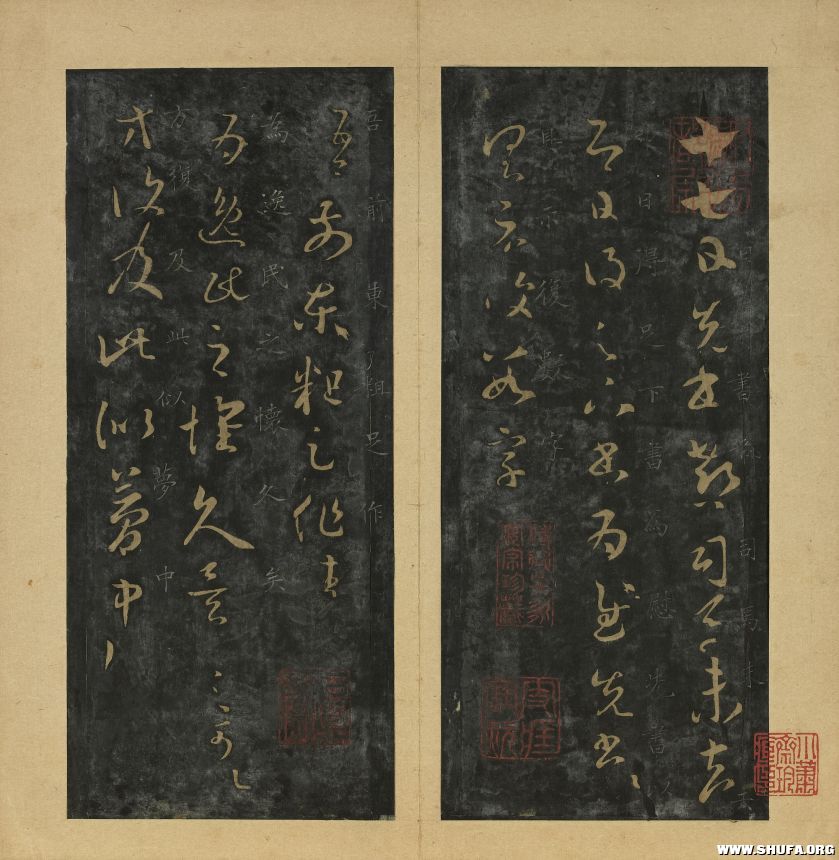 十七日先書郗司馬未去
日先書郗司馬未去
即日得足下書為慰先書以
日得足下書為慰先書以
具示復數字
具示復數字
吾前東粗足作佳
吾前東粗足作
為逸民之懷久矣足下何以
為逸民之懷久矣
方復及此似夢中
方復及此似夢中
WWW.SHUFA.ORG